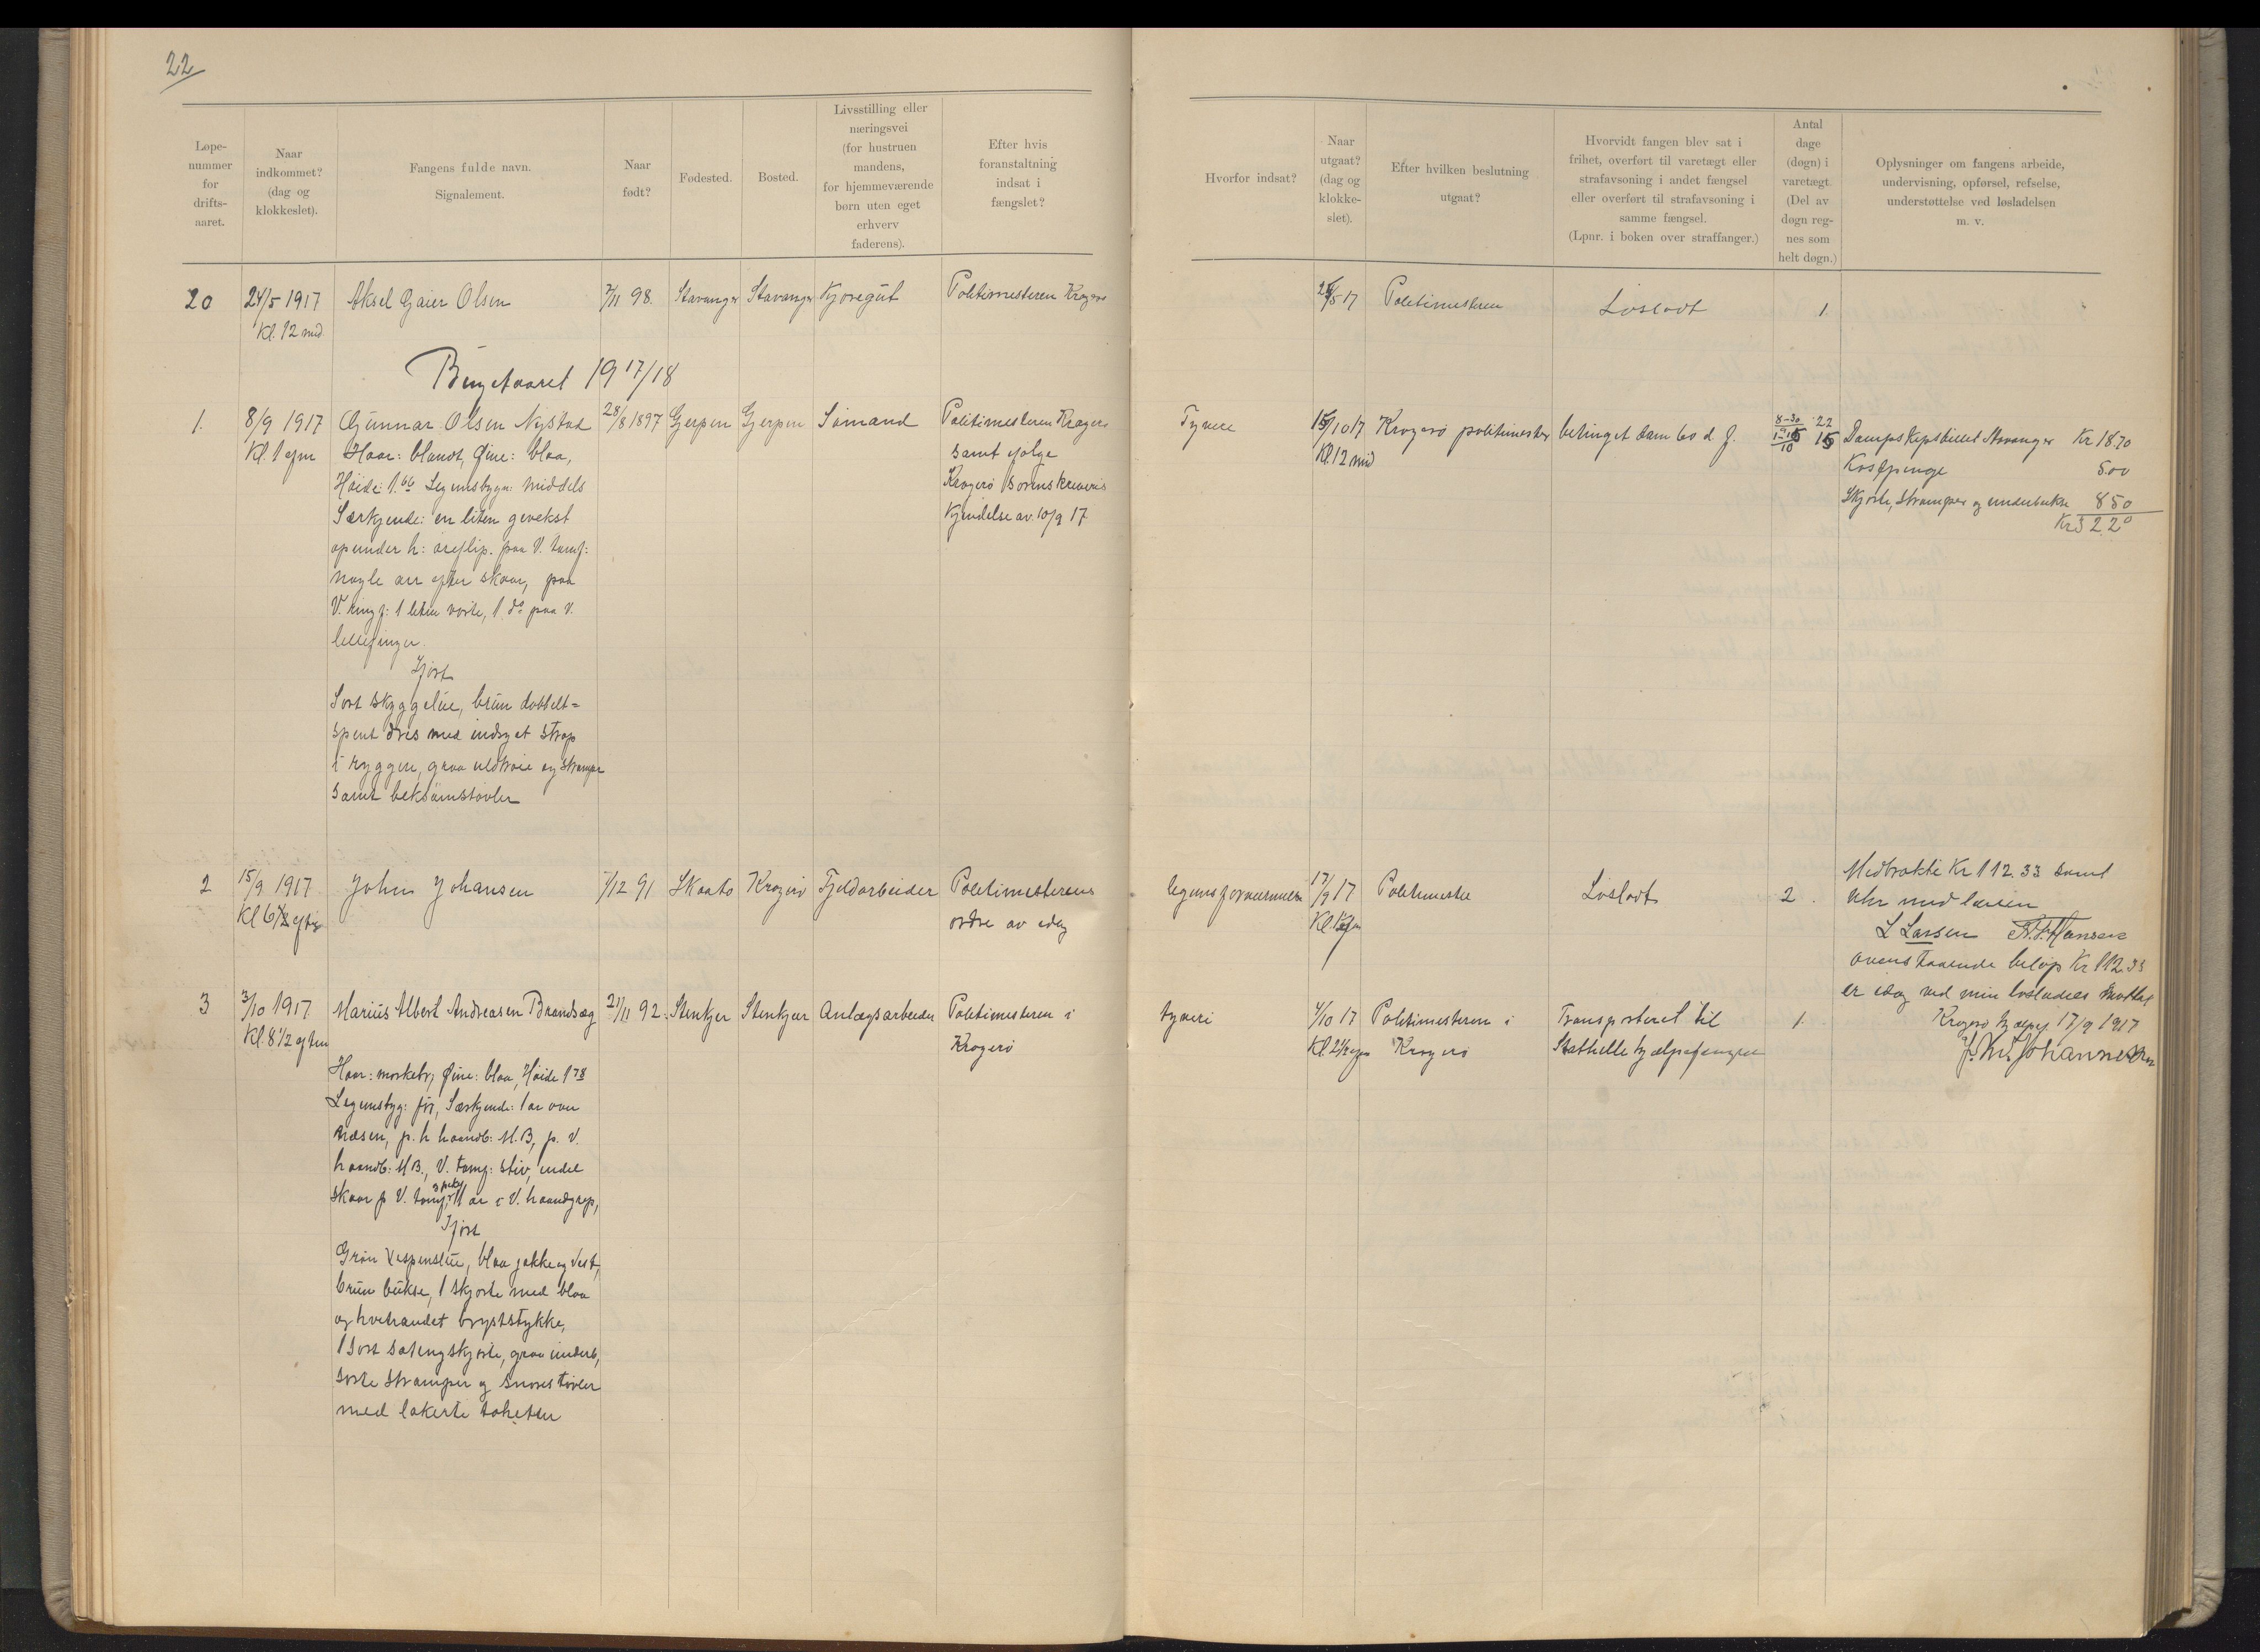 22
Løpe-
nummer
for
drifts-
aaret.
Naar
indkommet?
(dag og
klokkeslet).
Fangens fulde navn.
Signalement.
Naar
født?
Fødested.
Bosted.
Livsstilling eller
næringsvei
(for hustruen
mandens,
for hjemmeværende
børn uten eget
erhverv
faderens).
Efter hvis
foranstaltning
indsat i
fængslet?
Hvorfor indsat?
Naar
utgaat?
(dag og
klokke-
slet).
Efter hvilken beslutning
utgaat?
Hvorvidt fangen blev sat i
frihet, overført til varetægt eller
strafavsoning i andet fængsel
eller overført til strafavsoning i
samme fængsel.
(Lpnr. i boken over straffanger.)
Antal
dage
(døgn) i
varetægt.
(Del av
døgn reg-
nes som
helt døgn.)
Oplysninger om fangens arbeide,
undervisning, opførsel, refselse,
understøttelse ved løsladelsen
m. v.
20 24/5 1917 Aksel Olsen 7/11 98. Stavanger Stavanger Kjøregut Politimesteren Kragerø /5 17 Politimesteren Løsladt 1
Kl. 12 mid
Bugetaaret 1917/18
1. 8/9 1917 Gunnar Olsen Nystad 28/8 1897 Gjerpen Gjerpen Sømand Politimesteren Kragerø Tyveri 15/10 17 Kragerø politimester betinget dom 60 d. f. 8-30 22 15 Dampskipsbillet Stavanger Kr 18.70
Kl. 1 efm Haar: blondt, Øine: blaa, samt ifølge Kl. 12 mid Kostpenge 5.00
Høide: 1.66 Legemsbygn: middels Kragerø sorenskriveris Skjorte, strømper og underbukse 8 50
Særkjende: en liten gevekst Kjendelse av 10/9 17. Kr 32 20
op under h: øreflip. paa V. tomf:
nogle arr efter skaar, paa
V. ringf: 1 liten vorte, 1 do paa v.
lillefinger.
Ifört
Sort skyggelue, brun dobbelt=
spent dres med indsyet strop
i ryggen, graa uldtrøie og strømper
samt beksømstøvler
2 15/9 1917 John Johansen /12 91 Skaatø Kragerø Fjeldarbeider Politimesterens legemsfornærmelse 17/9 17 Politimester Løsladt 2. Medbrakte Kr 112.33 samt
Kl 6 1/2 eftm ordre av idag uhr med lænke
L Larsen Hansen
Ovenstaaende beløp Kr 112.33
er idag ved min løsladelse mottat
3 3/10 1917 Marius Albert Andreasen Brandsæg 21/11 92. Stenkjer Stenkjær Anlægsarbeider Politimesteren i tyveri 4/10 17 Politimesteren i Transporteret til 1. Kragerø hjælpef. 17/9 1917
Kl. 8 1/2 eftm Kragerø Kl. 2 1/2 efm Kragerø Stathelle hjælpefængsel Johannessen
Haar: mørkebr; Øine: blaa, Høide 1 78
Legemsbyg: før, Særkjende: 1 ar over
Næsen, p. h haandb: M.B, p. V.
haandb: M B., V. tomf: stiv, endel
skaar p V. tomf, 1 ar i V. haandgrep,
Ifört
Grøn Vespenslue, blaa jakke og Vest,
brun bukse, 1 skjorte med blaa
og hvitrandet bryststykke,
1 sort satengskjorte, graa underb,
sorte strømper og snørestøvler
med lakerte tåhetter